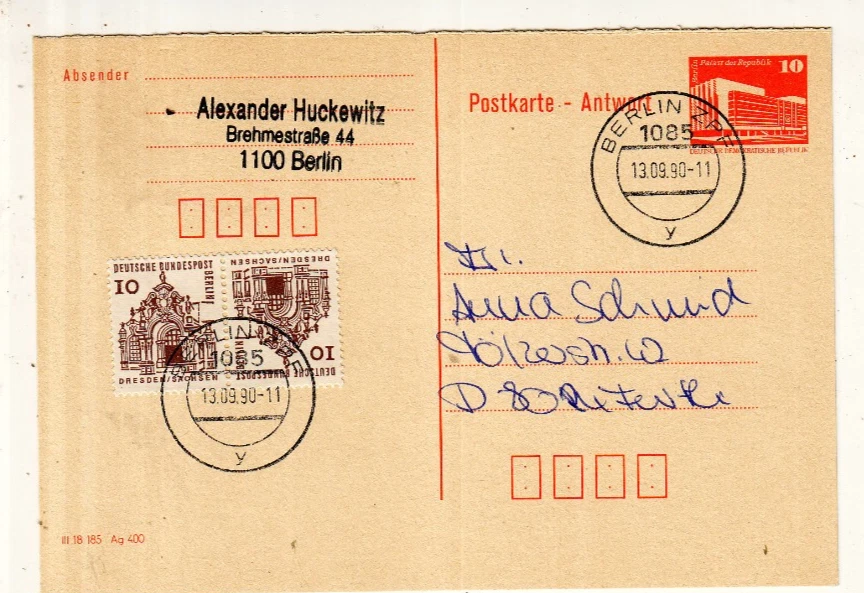 Absender
Alexander Huckewitz
Brehmestraße 44
1100 Berlin
Postkarte - Antwort
Berlin Palast der Republik 10
DEUTSCHE DEMOKRATISCHE REPUBLIK
BERLIN ZPF
1085
13.09.90-11
y
Anna Schmid
DEUTSCHE BUNDESPOST
BERLIN
10
DRESDEN/SACHSEN
DRESDEN/SACHSEN
BERLIN
10
DEUTSCHE BUNDESPOST
BERLIN ZPF
1085
13.09.90-11
y
III 18 185 Ag 400